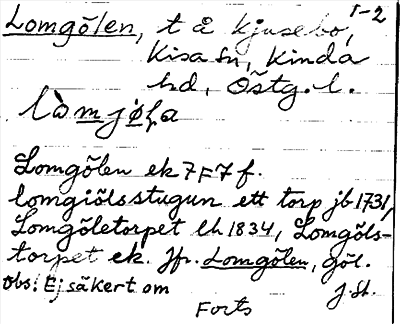 1-2
Lomgölen, t å Kjusebo,
Kisa sn, Kinda
hd, Östg. l.
Lomgölen ek 7F7f.
lomgiölsstugun ett torp jb 1731,
Lomgöletorpet lh 1834, Lomgöls-
torpet ek. Jfr. Lomgölen, göl.
obs! Ej säkert om J.St.
Forts